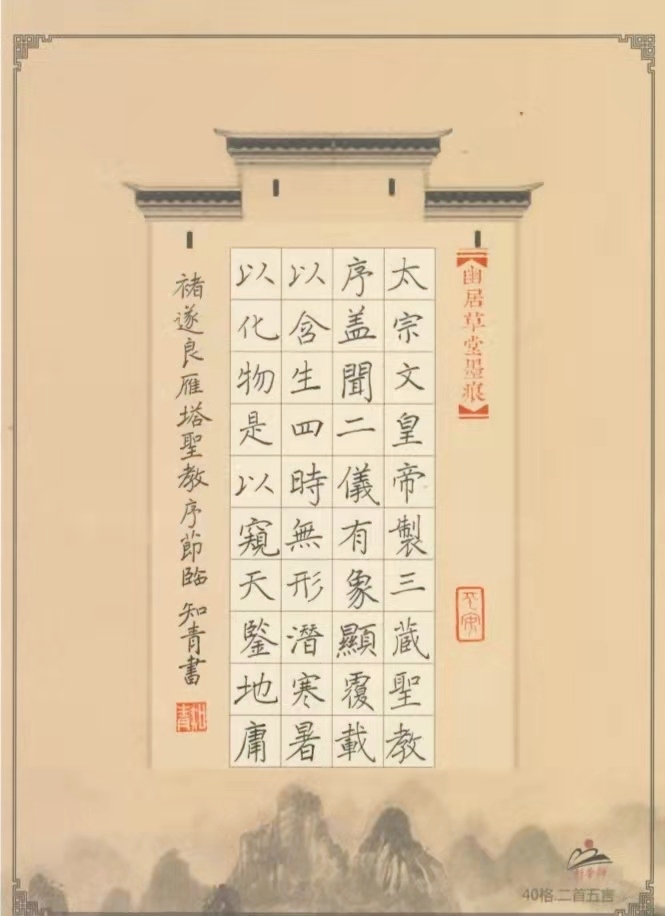 幽居草堂墨痕
太宗文皇帝製三蔵聖教
序盖聞二儀有象顯覆載
以含生四時無形潛寒暑
以化物是以窺天鑒地庸
褚遂良雁塔聖教序節臨 知青書
知青
40格.二首五言